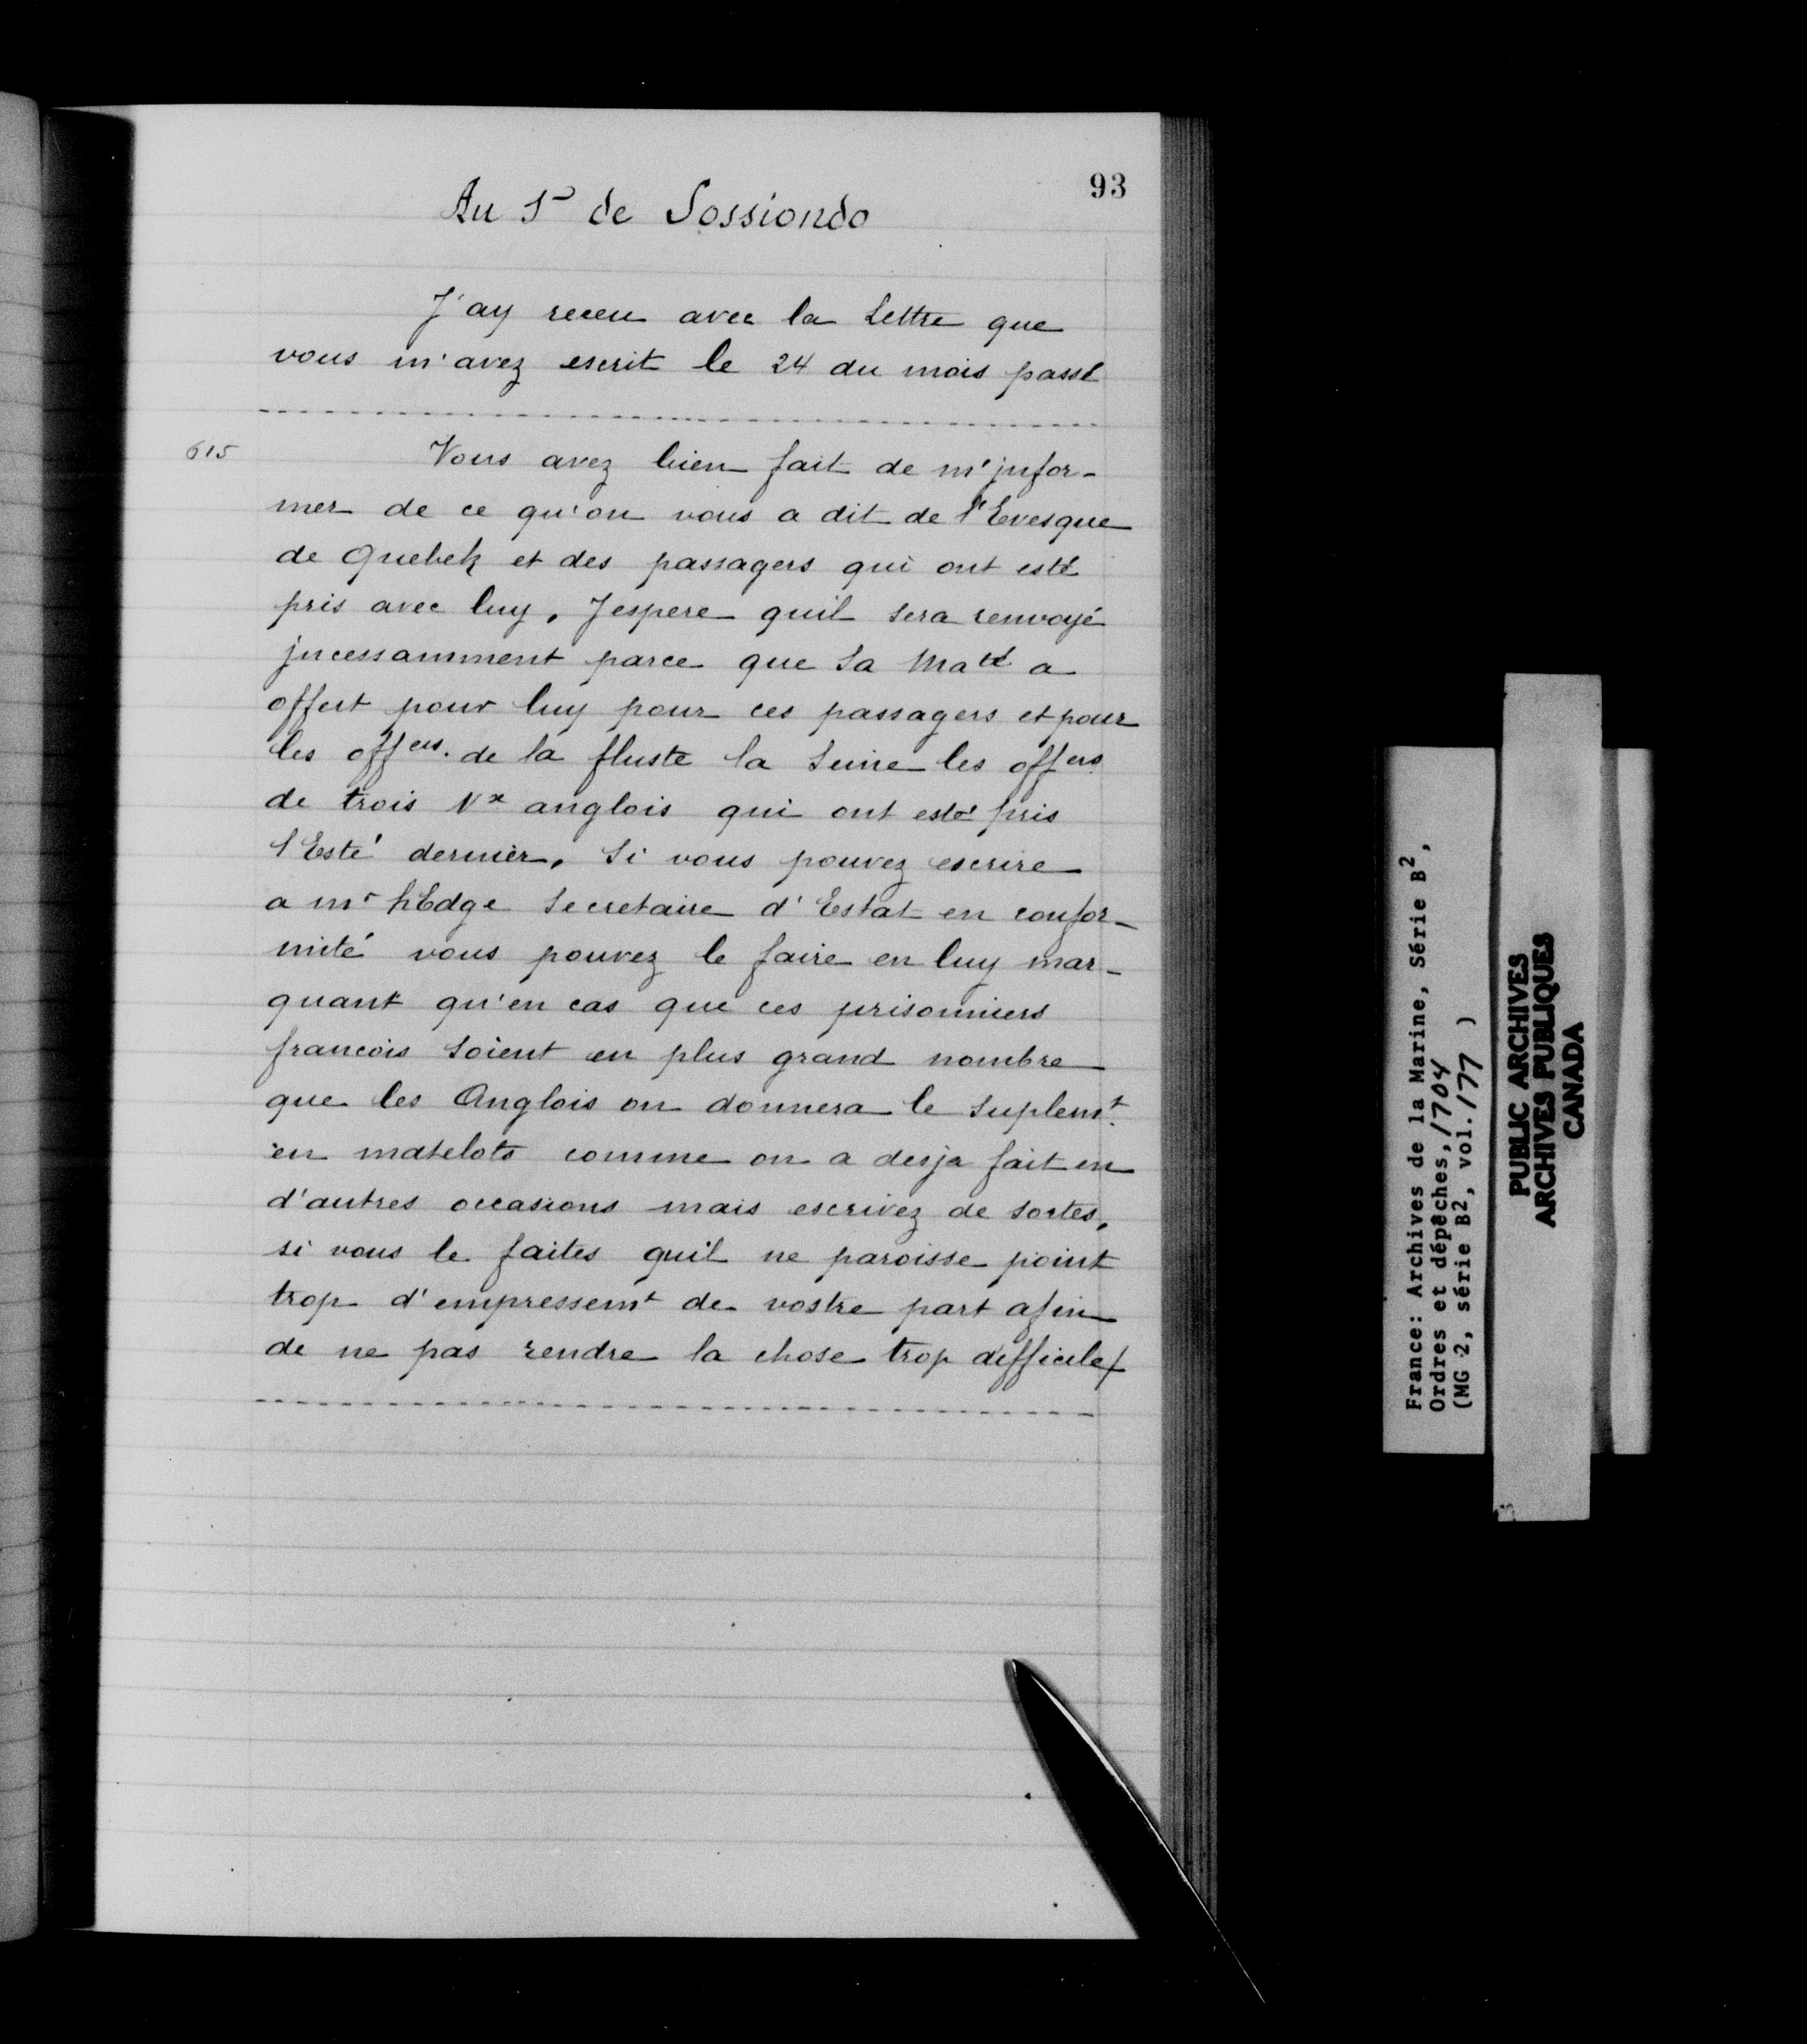 93
Au Sr de Sossiondo
J'ay receu avec la Lettre que
vous m'avez escrit le 24 du mois passé
615
Vous avez bien fait de m'jnfor-
mer de ce qu'on vous a dit de l'Evesque
de Quebek et des passagers qui ont esté
pris avec luy. Jespere quil sera renvoyé
jncessamment parce que Sa Maté a
offert pour luy pour ces passagers et pour
les offers. de la fluste la Seine les offers
de trois Vx anglois qui ont esté pris
l'Esté dernier. Si vous pouvez escrire
a mr hEdge Secretaire d'Estat en confor-
mité vous pouvez le faire en luy mar-
quant qu'en cas que ces prisonniers
francois soient en plus grand nombre
que les Anglois on donnera le suplemt.
en matelots comme on a desja fait en
d'autres occasions mais escrivez de sortes,
si vous le faites quil ne paroisse point
trop d'empressemt de vostre part afin
de ne pas rendre la chose trop difficile/
France: Archives de la Marine, Série B2,
Ordres et dépêches, 1704
(MG 2, série B2, vol. 177 )
PUBLIC ARCHIVES
ARCHIVES PUBLIQUES
CANADA